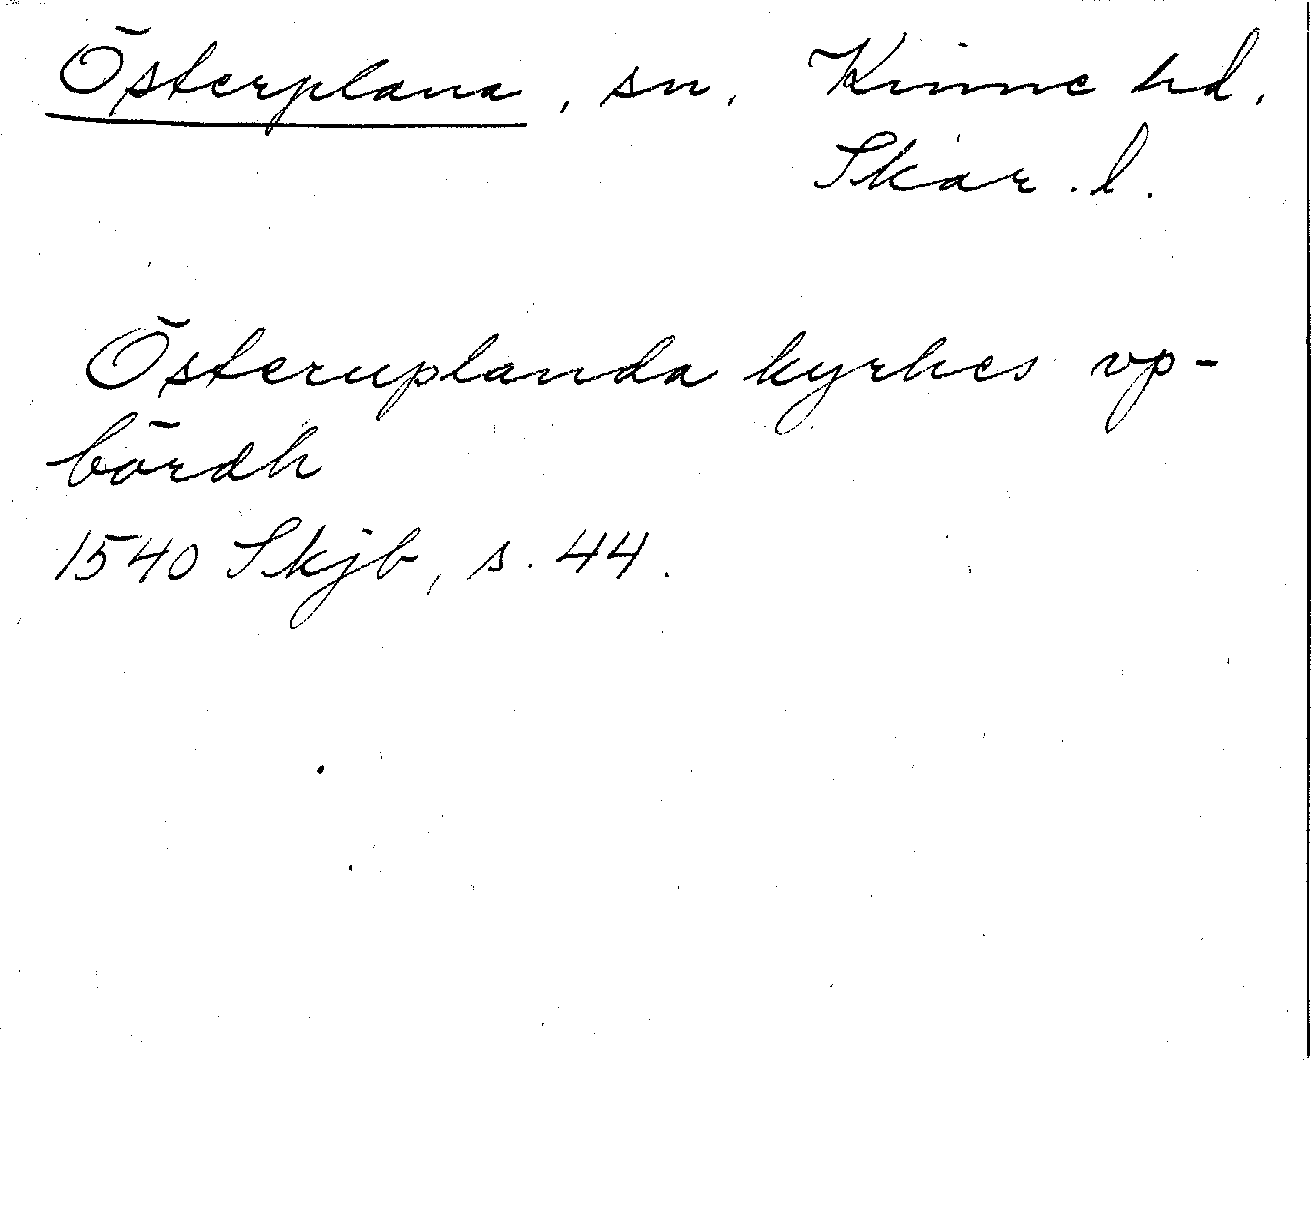 Österplana, sn. Kinne hd.
Skar. l.
Österuplanda kyrkes vp-
bördh
1540 Skjb, s. 44.